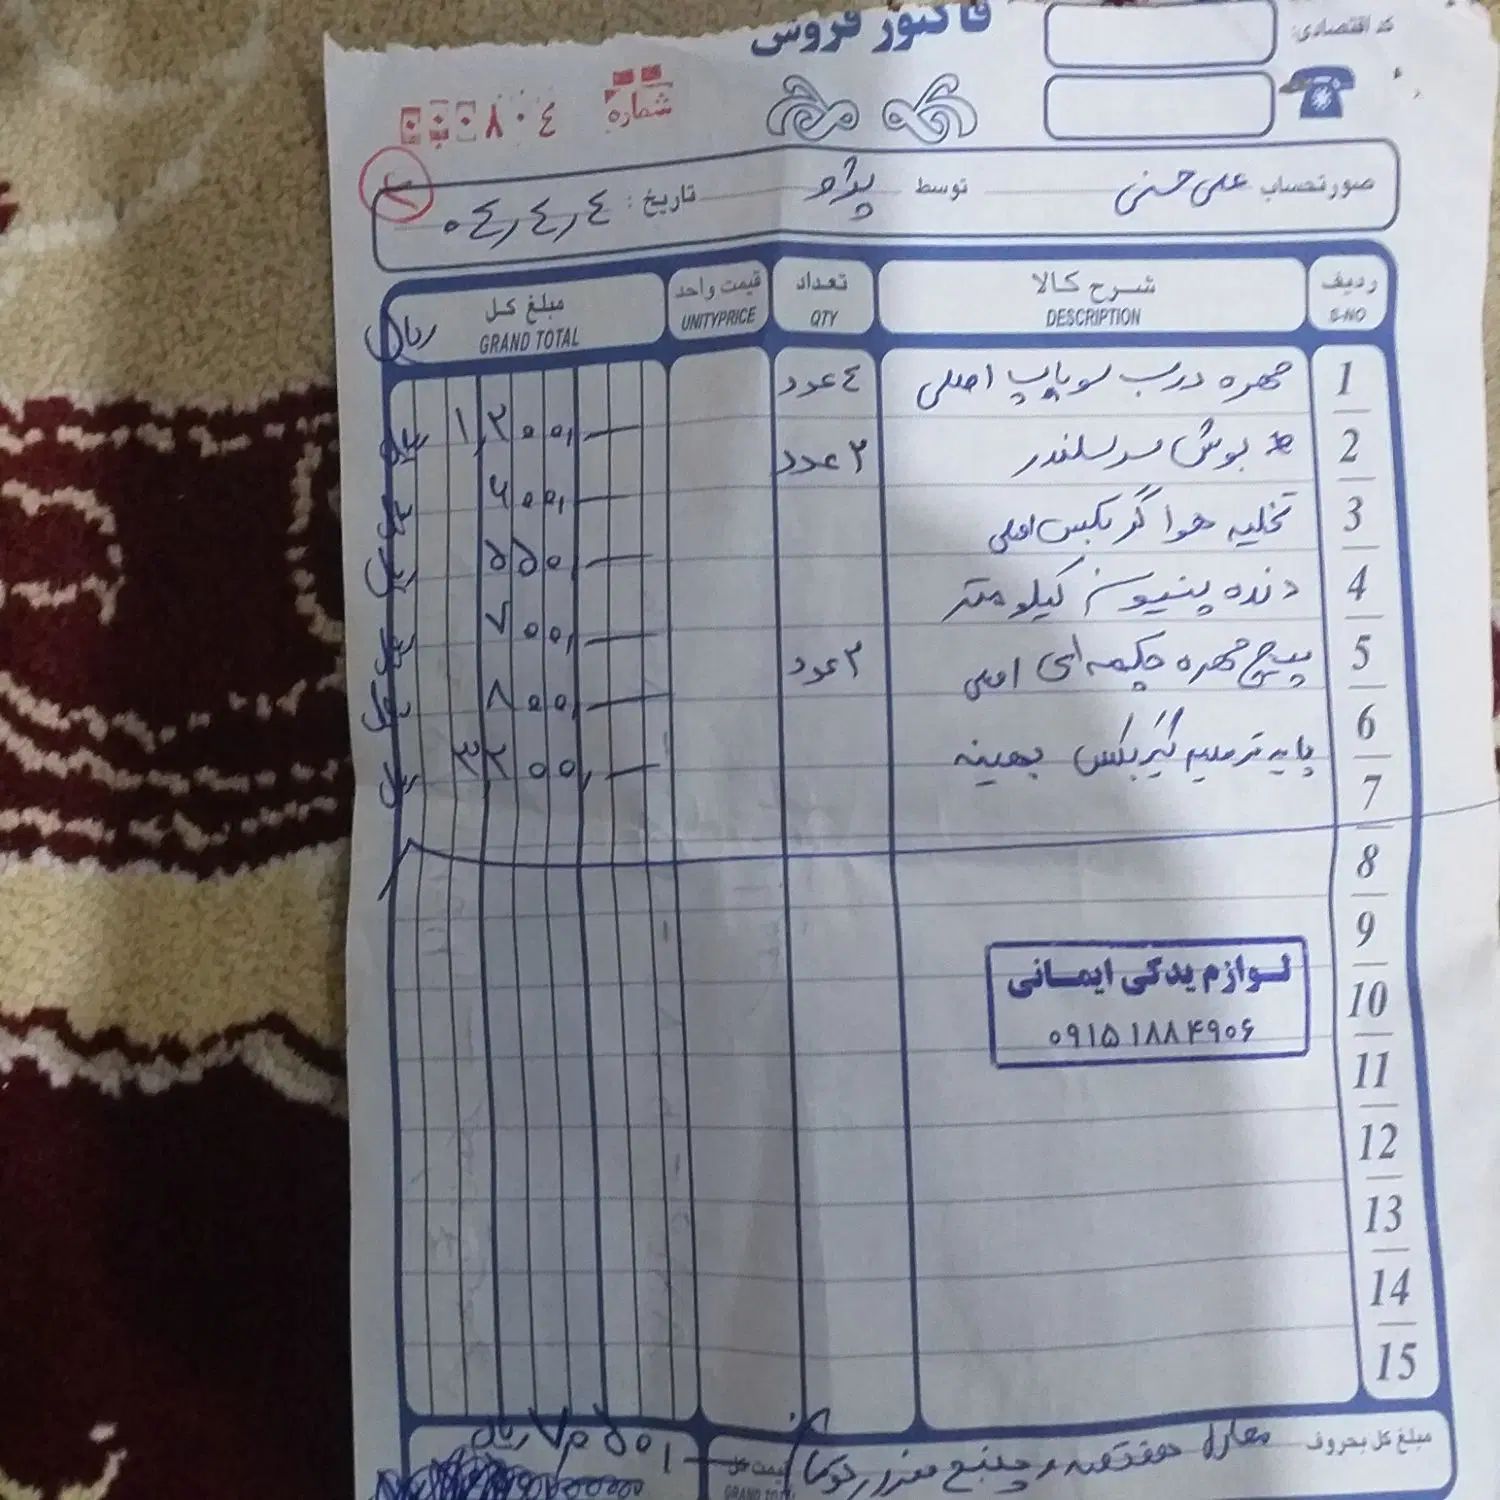 فاکتور فروش
کد اقتصادی:
شماره ۰۰۰۸۰٤
صورتحساب علی حسنی توسط پژو تاریخ: ۰٤٫٤٫٤
ردیف شرح کالا تعداد قیمت واحد مبلغ کل ریال
S-NO DESCRIPTION QTY UNITYPRICE GRAND TOTAL
1 مهره درب سوپاپ اصلی ٤ عدد ۱,۲۰۰, ریال
2 بوش سرسلندر ۲ عدد ۶۰۰, ریال
3 تخلیه هوا گربکس اصلی ۵۵۰, ریال
4 دنده پنیون کیلومتر ۷۰۰, ریال
5 پیچ مهره چکمه ای اصلی ۲ عدد ۸۰۰, ریال
6 پایه ترمیم گیربکس بهینه ۳۲۰۰, ریال
7
8
9
10
11
12
13
14
15
لوازم یدکی ایمانی
۰۹۱۵۱۸۸۴۹۰۶
مبلغ کل بحروف معادل هفتصد و پنج هزار تومان قیمت کل ریال
GRAND TOTAL